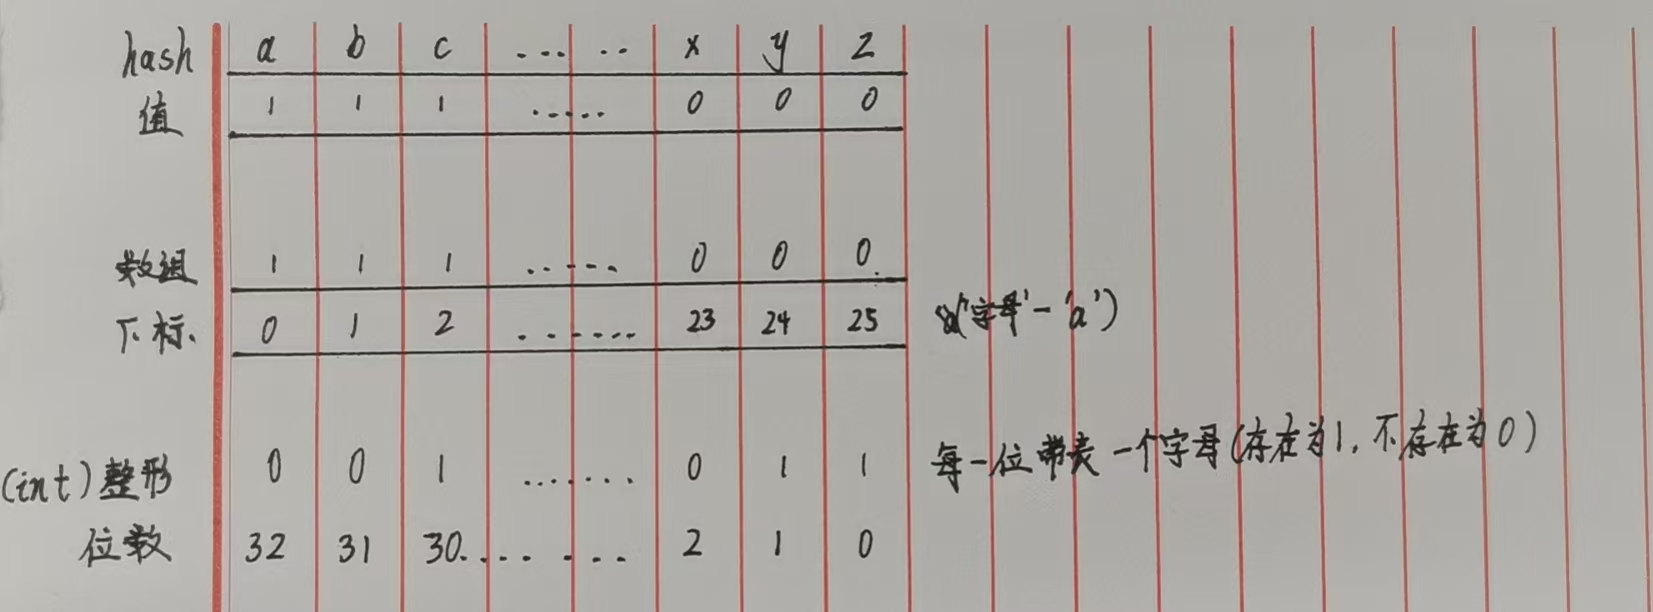 hash a b c ... .. x y z
值 1 1 1 ..... 0 0 0
数组 1 1 1 ...... 0 0 0.
下标. 0 1 2 ....... 23 24 25 '字母' - 'a')
(int)整形 0 0 1 ....... 0 1 1 每一位带表一个字母(存在为1,不存在为0)
位数 32 31 30. ... ... 2 1 0